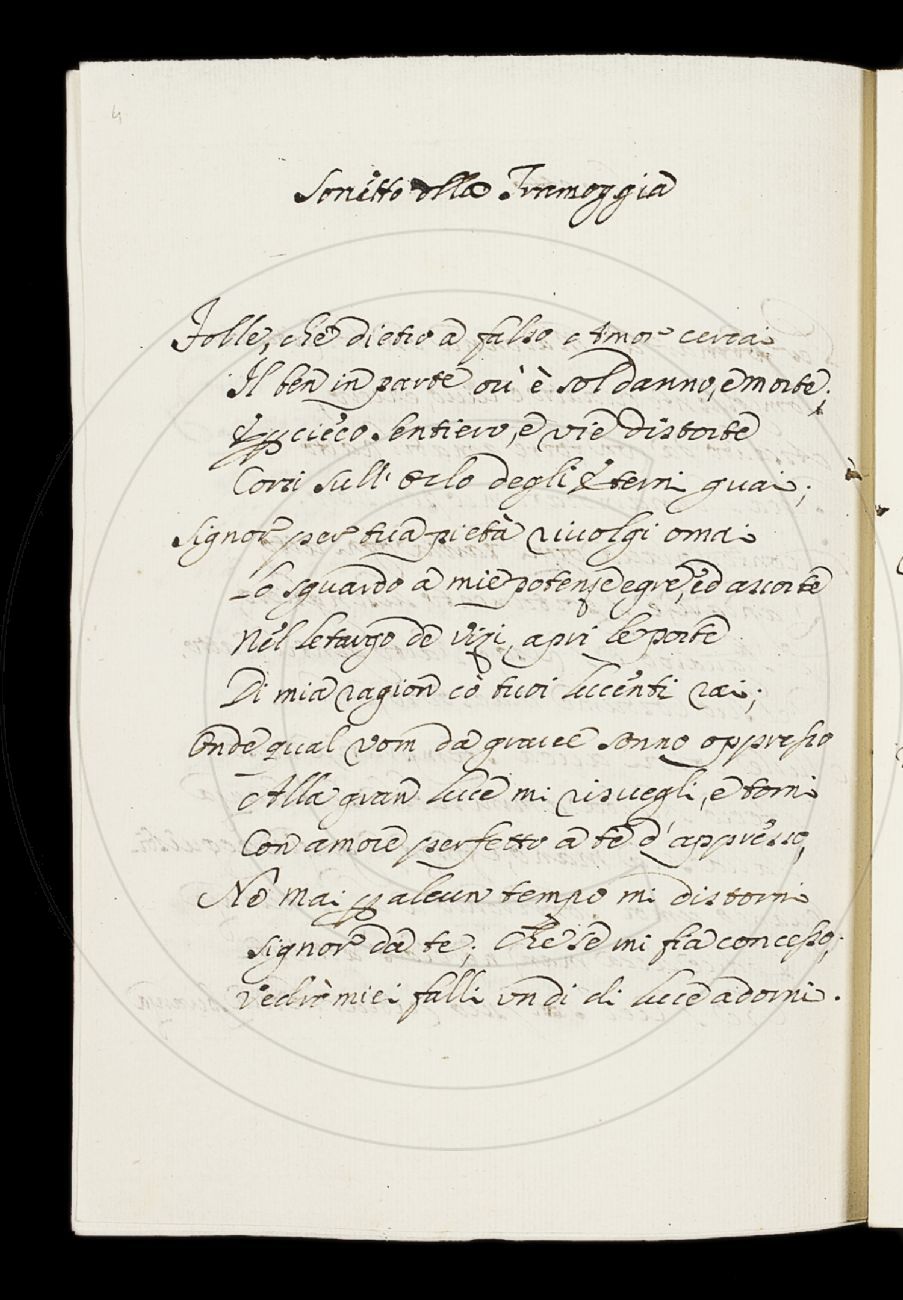 4
Sonetto della Tramoggia
Folle, che dietro a falso Amor cercai
Il ben in parte ov' è sol danno, e morte;
E p cieco sentiero, e vie distorte
Corsi sull' orlo degli Eterni guai;
Signor per tua pietà rivolgi omai
Lo sguardo a mie potenze egre, ed assorte
Nel letargo de vizi, apri le porte
Di mia ragion cò tuoi lucenti rai;
Onde qual vom da grave sonno oppresso
Alla gran luce mi risvegli, e torni
Con amore perfetto a te d' appresso,
Nè mai p alcun tempo mi distorni
Signor da te; Che se mi fia concesso,
Vedrò miei falli un di di luce adorni.